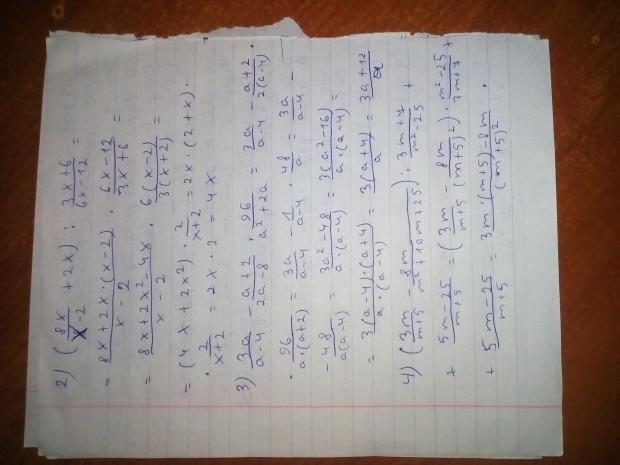 2) (8x/x-2 + 2x) : 3x+6/6x-12 =
= 8x+2x·(x-2)/x-2 · 6x-12/3x+6 =
= 8x+2x²-4x/x-2 · 6(x-2)/3(x+2) =
= (4x+2x²)·2/x+2 = 2x·(2+x)·
· 2/x+2 = 2x·2 = 4x
3) 3a/a-4 - a+2/2a-8 · 96/a²+2a = 3a/a-4 - a+2/2(a-4) ·
· 96/a·(a+2) = 3a/a-4 - 1/a-4 · 48/a = 3a/a-4 -
- 48/a(a-4) = 3a²-48/a·(a-4) = 3(a²-16)/a·(a-4) =
= 3(a-4)·(a+4)/a·(a-4) = 3(a+4)/a = 3a+12/a
4) (3m/m+5 - 8m/m²+10m+25) : 3m+7/m²-25 +
+ 5m-25/m+5 = (3m/m+5 - 8m/(m+5)²) · m²-25/3m+7 +
+ 5m-25/m+5 = 3m·(m+5)-8m/(m+5)² ·